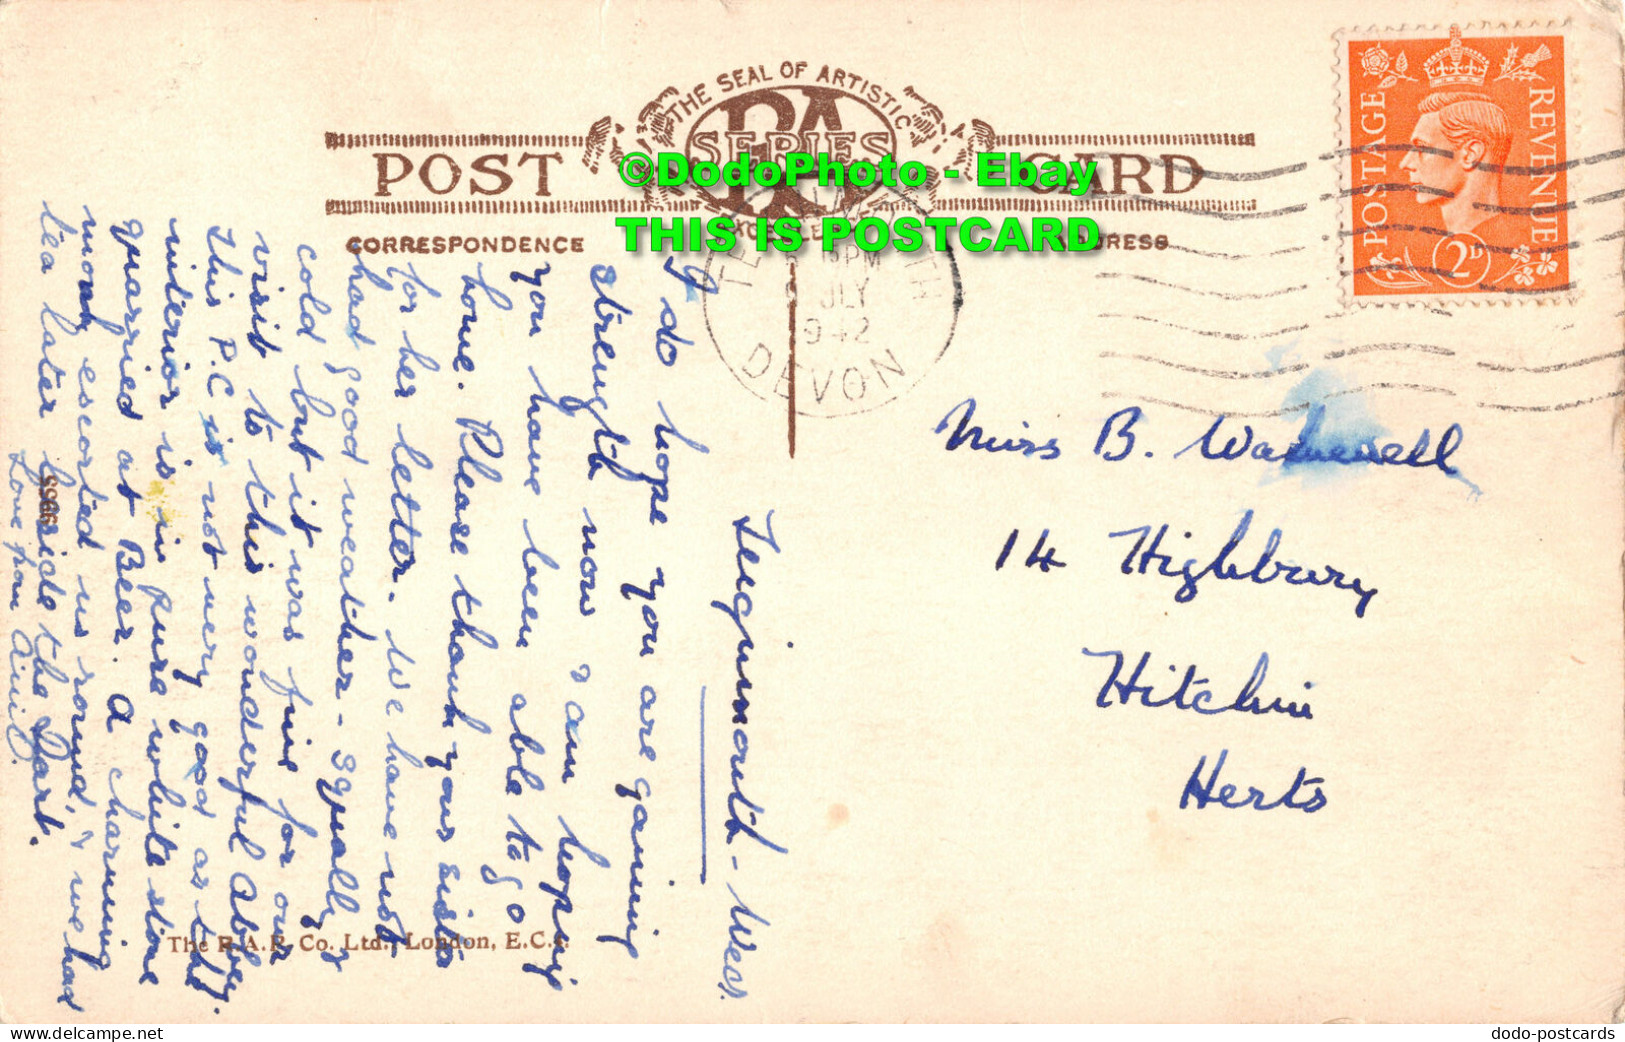 THE SEAL OF ARTISTIC
RA
SERIES
POST CARD
CORRESPONDENCE
©DodoPhoto - Ebay
THIS IS POSTCARD
15 PM
JLY
1942
DEVON
POSTAGE
REVENUE
2D
Teignmouth - Wed.
I do hope you are gaining
strength now & am hoping
you have been able to go
home. Please thank your sister
for her letter. We have not
had good weather - squally &
cold but it was fine for our
visit to this wonderful Abbey.
This P.C is not very good as the
interior is in pure white stone
quarried at Beer. A charming
monk escorted us round, & we had
tea later beside the Dart.
Love from
Miss B.
14 Highbury
Hitchin
Herts
The R.A.P. Co. Ltd., London, E.C.4.